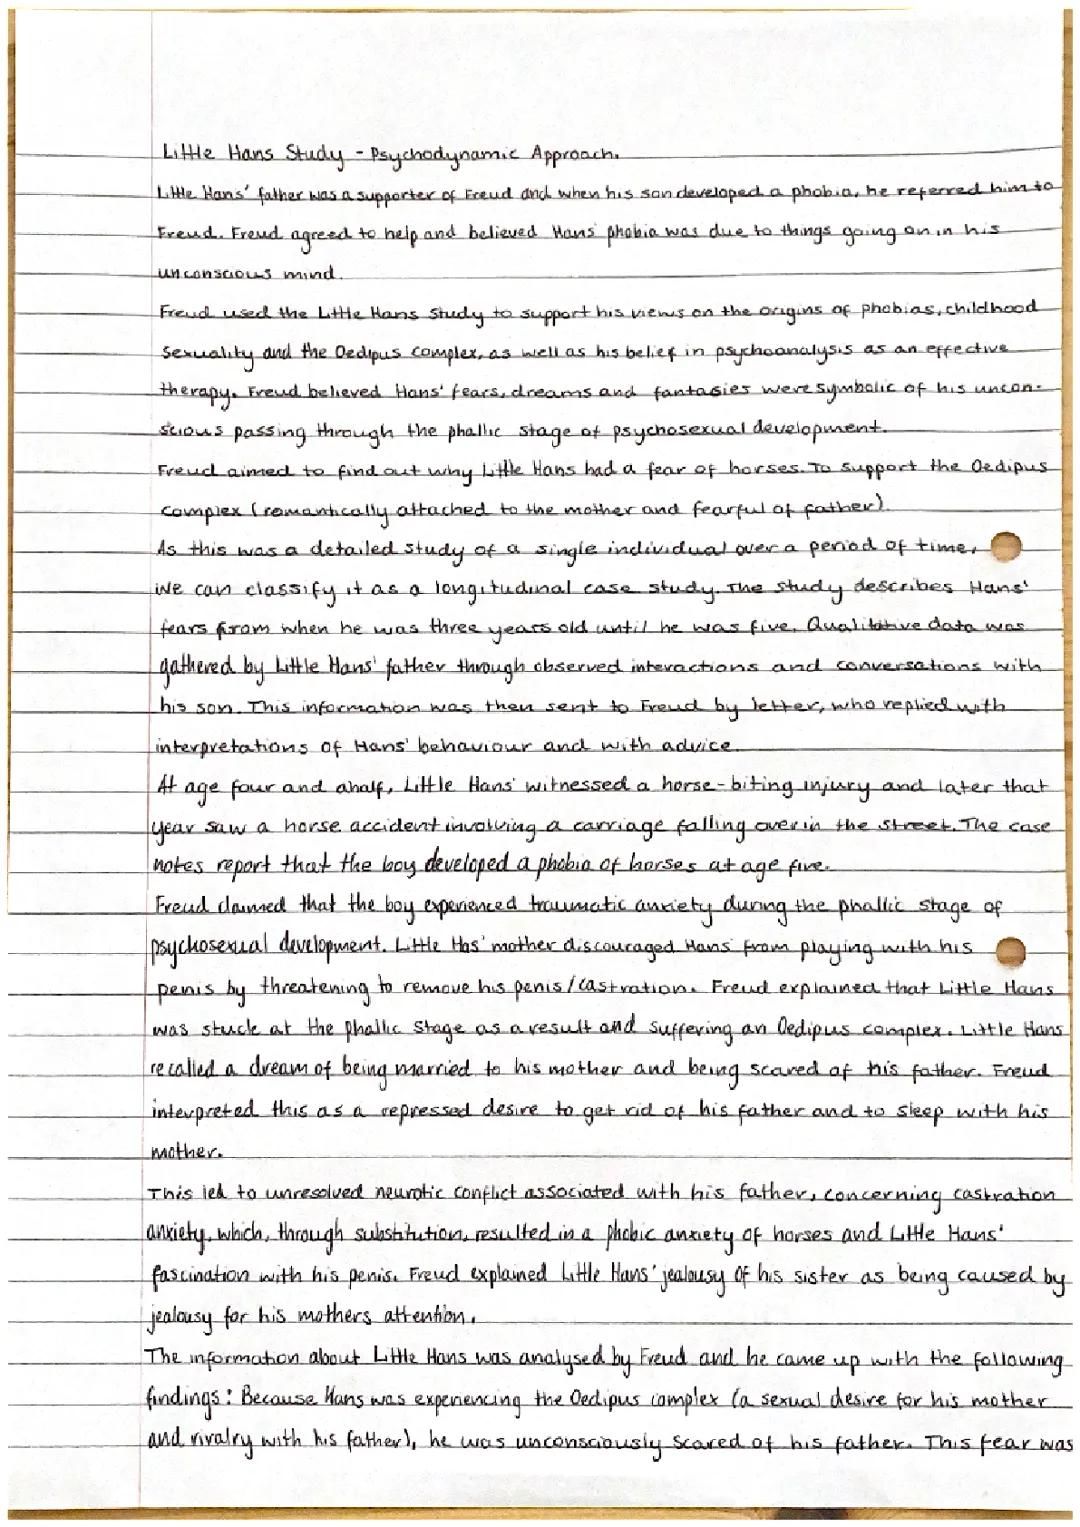 Little Hans Study - Psychodynamic Approach.
Little Hans' father was a supporter of Freud and when his son developed a phobia, he referred him to
Freud. Freud agreed to help and believed Hans' phobia was due to things going on in his
unconscious mind.
Freud used the Little Hans Study to support his views on the origins of phobias, childhood
sexuality and the Oedipus complex, as well as his belief in psychoanalysis as an effective
therapy. Freud believed Hans' fears, dreams and fantasies were symbolic of his uncon-
scious passing through the phallic stage of psychosexual development.
Freud aimed to find out why Little Hans had a fear of horses. To support the Oedipus
complex (romantically attached to the mother and fearful of father).
As this was a detailed study of a single individual over a period of time,
we can classify it as a longitudinal case study. The study describes Hans'
fears from when he was three years old until he was five. Qualitative data was
gathered by Little Hans' father through observed interactions and conversations with
his son. This information was then sent to Freud by letter, who replied with
interpretations of Hans' behaviour and with advice.
At age four and a half, Little Hans' witnessed a horse-biting injury and later that
year saw a horse accident involving a carriage falling over in the street. The case
notes report that the boy developed a phobia of horses at age five.
Freud claimed that the boy experienced traumatic anxiety during the phallic stage of
psychosexual development. Little Has' mother discouraged Hans' from playing with his
penis by threatening to remove his penis/castration. Freud explained that Little Hans
was stuck at the phallic stage as a result and suffering an Oedipus complex. Little Hans
recalled a dream of being married to his mother and being scared of his father. Freud
interpreted this as a repressed desire to get rid of his father and to sleep with his
mother.
This led to unresolved neurotic conflict associated with his father, concerning castration
anxiety, which, through substitution, resulted in a phobic anxiety of horses and Little Hans'
fascination with his penis. Freud explained Little Hans' jealousy of his sister as being caused by
jealousy for his mothers attention.
The information about Little Hans was analysed by Freud and he came up with the following
findings: Because Hans was experiencing the Oedipus complex (a sexual desire for his mother
and rivalry with his father), he was unconsciously scared of his father. This fear was